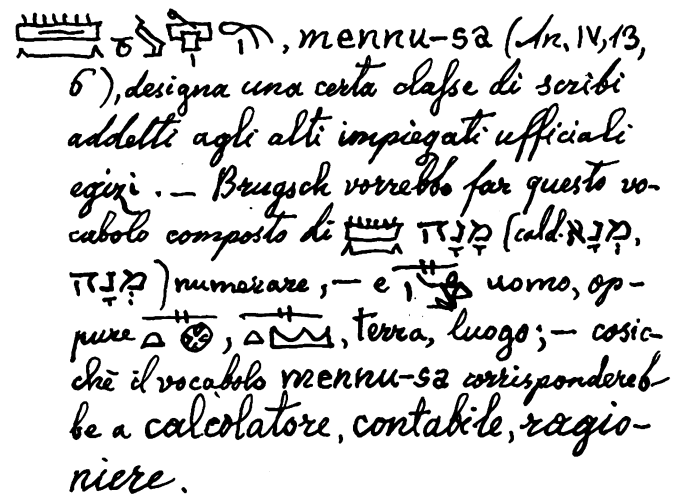 , mennu-sa (An. IV, 13,
6), designa una certa claſse di scribi
addetti agli alti impiegati ufficiali
egizi. — Brugsch vorrebbe far questo vo-
cabolo composto di מָנָה (cald. מְנָא,
מְנָה) numerare, — e uomo, op-
pure , , terra, luogo; — cosic-
chè il vocabolo mennu-sa corrispondereb-
be a calcolatore, contabile, ragio-
niere.